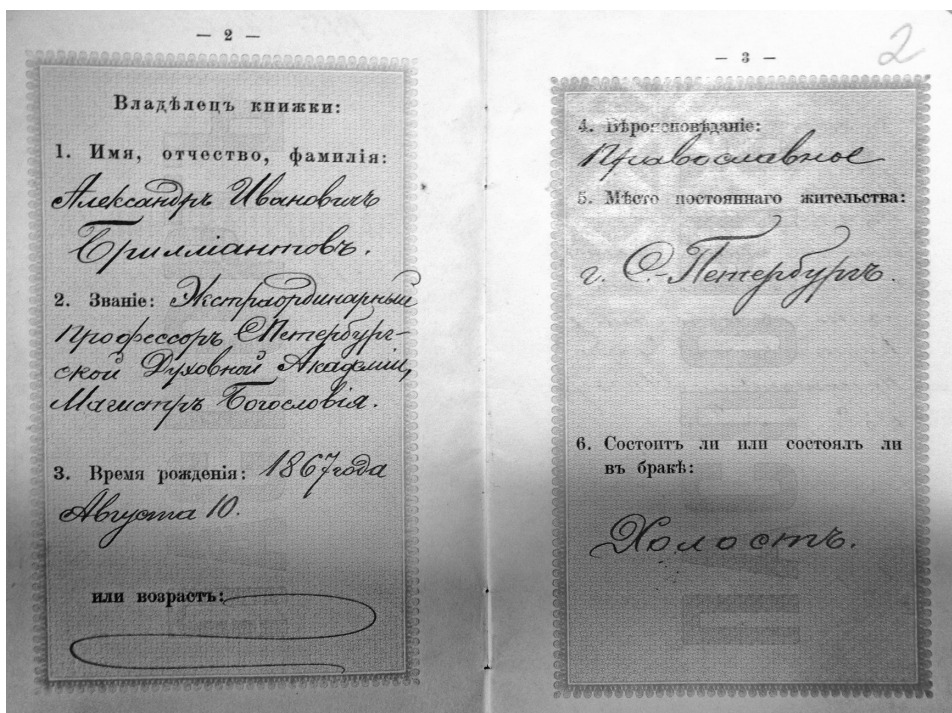 — 2 —
Владѣлецъ книжки:
1. Имя, отчество, фамилія:
Александръ Ивановичъ
Брилліантовъ.
2. Званіе: Экстраординарный
Профессоръ СПетербург-
ской Духовной Академіи,
Магистръ Богословія.
3. Время рожденія: 1867 года
Августа 10.
или возрастъ:
2
— 3 —
4. Вѣроисповѣданіе:
Православное
5. Мѣсто постояннаго жительства:
г. С.-Петербургъ.
6. Состоитъ ли или состоялъ ли
въ бракѣ:
Холостъ.